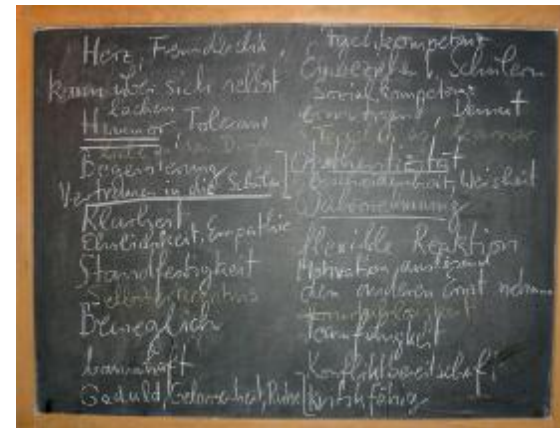 Herz, Freundlichk.,
kann über sich selbst
lachen
Humor, Toleranz
Begeisterung
Vertrauen in die Schüler
Klarheit
Ehrlichkeit, Empathie
Standfestigkeit
Selbsterkenntnis
Beweglich
Geduld, Gelassenheit, Ruhe
Fachkompetenz
Schülern
Sozialkompetenz
Demut
Authentizität
Bescheidenheit, Weisheit
Wahrnehmung
flexible Reaktion
Motivation
dem anderen ernst nehmen
Teamfähigkeit
Konfliktbereitschaft
kritikfähig